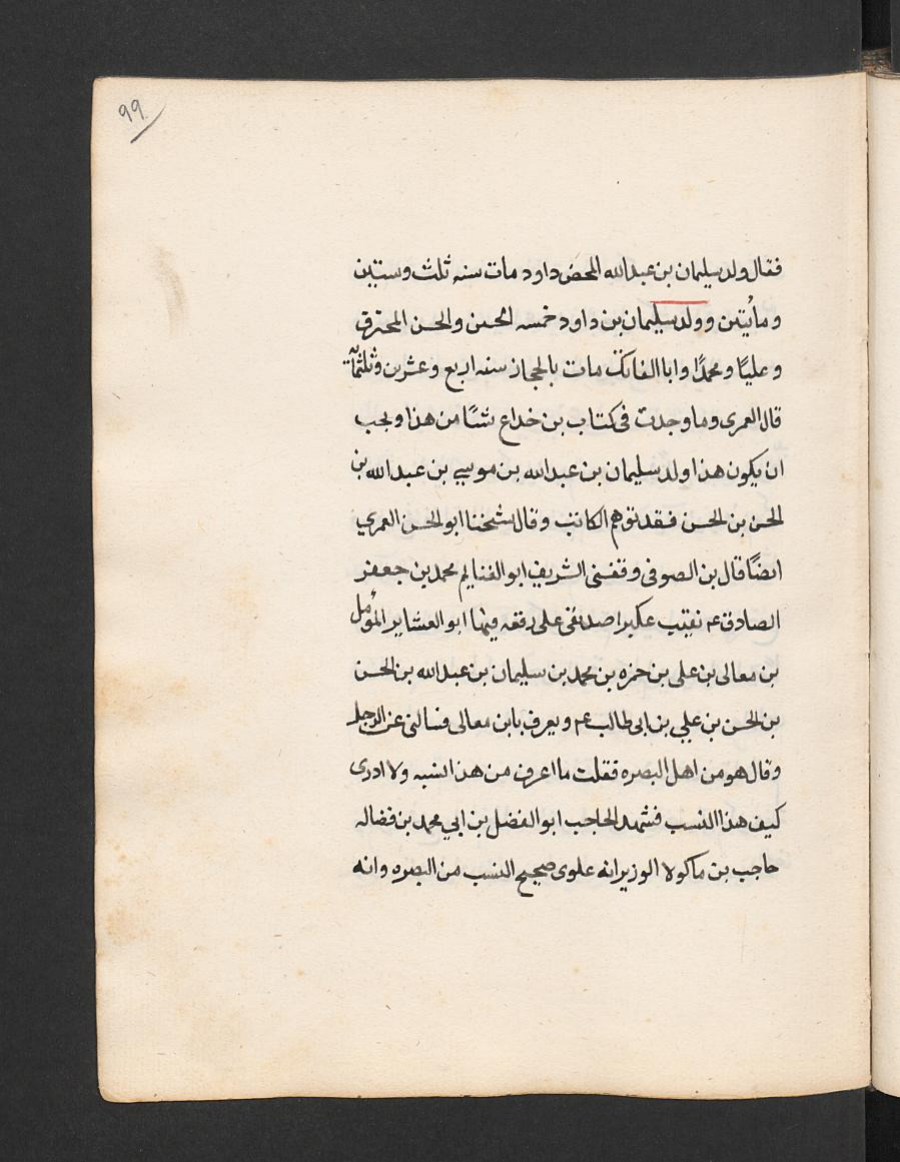 ٩٩
فقال ولد سليمان بن عبدالله المحض داود مات سنه ثلث وستين
ومائيتن وولد سليمان بن داود خمسه الحسن والحسن المحترق
وعليًا ومحمدًا وابا الفاتك مات بالحجاز سنه اربع وعشرن وثلثمآئة
قال العمرى وما وجدت فى كتاب بن خداع شئًا من هذا ويجب
ان يكون هذا ولد سليمان بن عبدالله بن موسي بن عبدالله بن
الحسن بن الحسن فقد توهم الكاتب وقال شيخنا ابو الحسن العمري
ايضًا قال بن الصوفى وقفنى الشريف ابو الغنايم محمد بن جعفر
الصادق ع‍م نقيب عكبرا صديقى على رقعه فيها ابو العشاير المؤمل
بن معالى بن على بن حمزه بن محمد بن سليمان بن عبدالله بن الحسن
بن الحسن بن علي بن ابى طالب ع‍م ويعرف بابن معالى فسالنى عن الرجل
وقال هو من اهل البصره فقلت ما اعرف من هذا النسبه ولا ادرى
كيف هذا النسب فشهد الحاجب ابو الفضل بن ابي محمد بن فضاله
حاجب بن ماكولا الوزير انه علوى صحيح النسب من البصره وانه